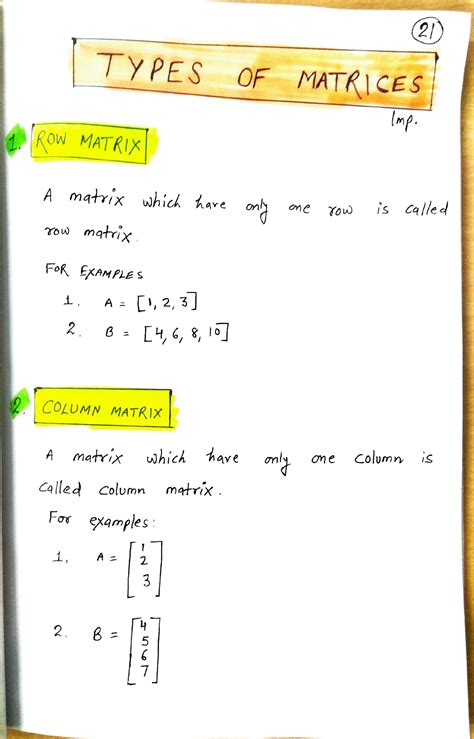 21
TYPES OF MATRICES
Imp.
1. ROW MATRIX
A matrix which have only one row is called
row matrix.
FOR EXAMPLES
1. A = [1, 2, 3]
2. B = [4, 6, 8, 10]
2. COLUMN MATRIX
A matrix which have only one column is
called column matrix.
For examples:
1. A = [1
2
3]
2. B = [4
5
6
7]